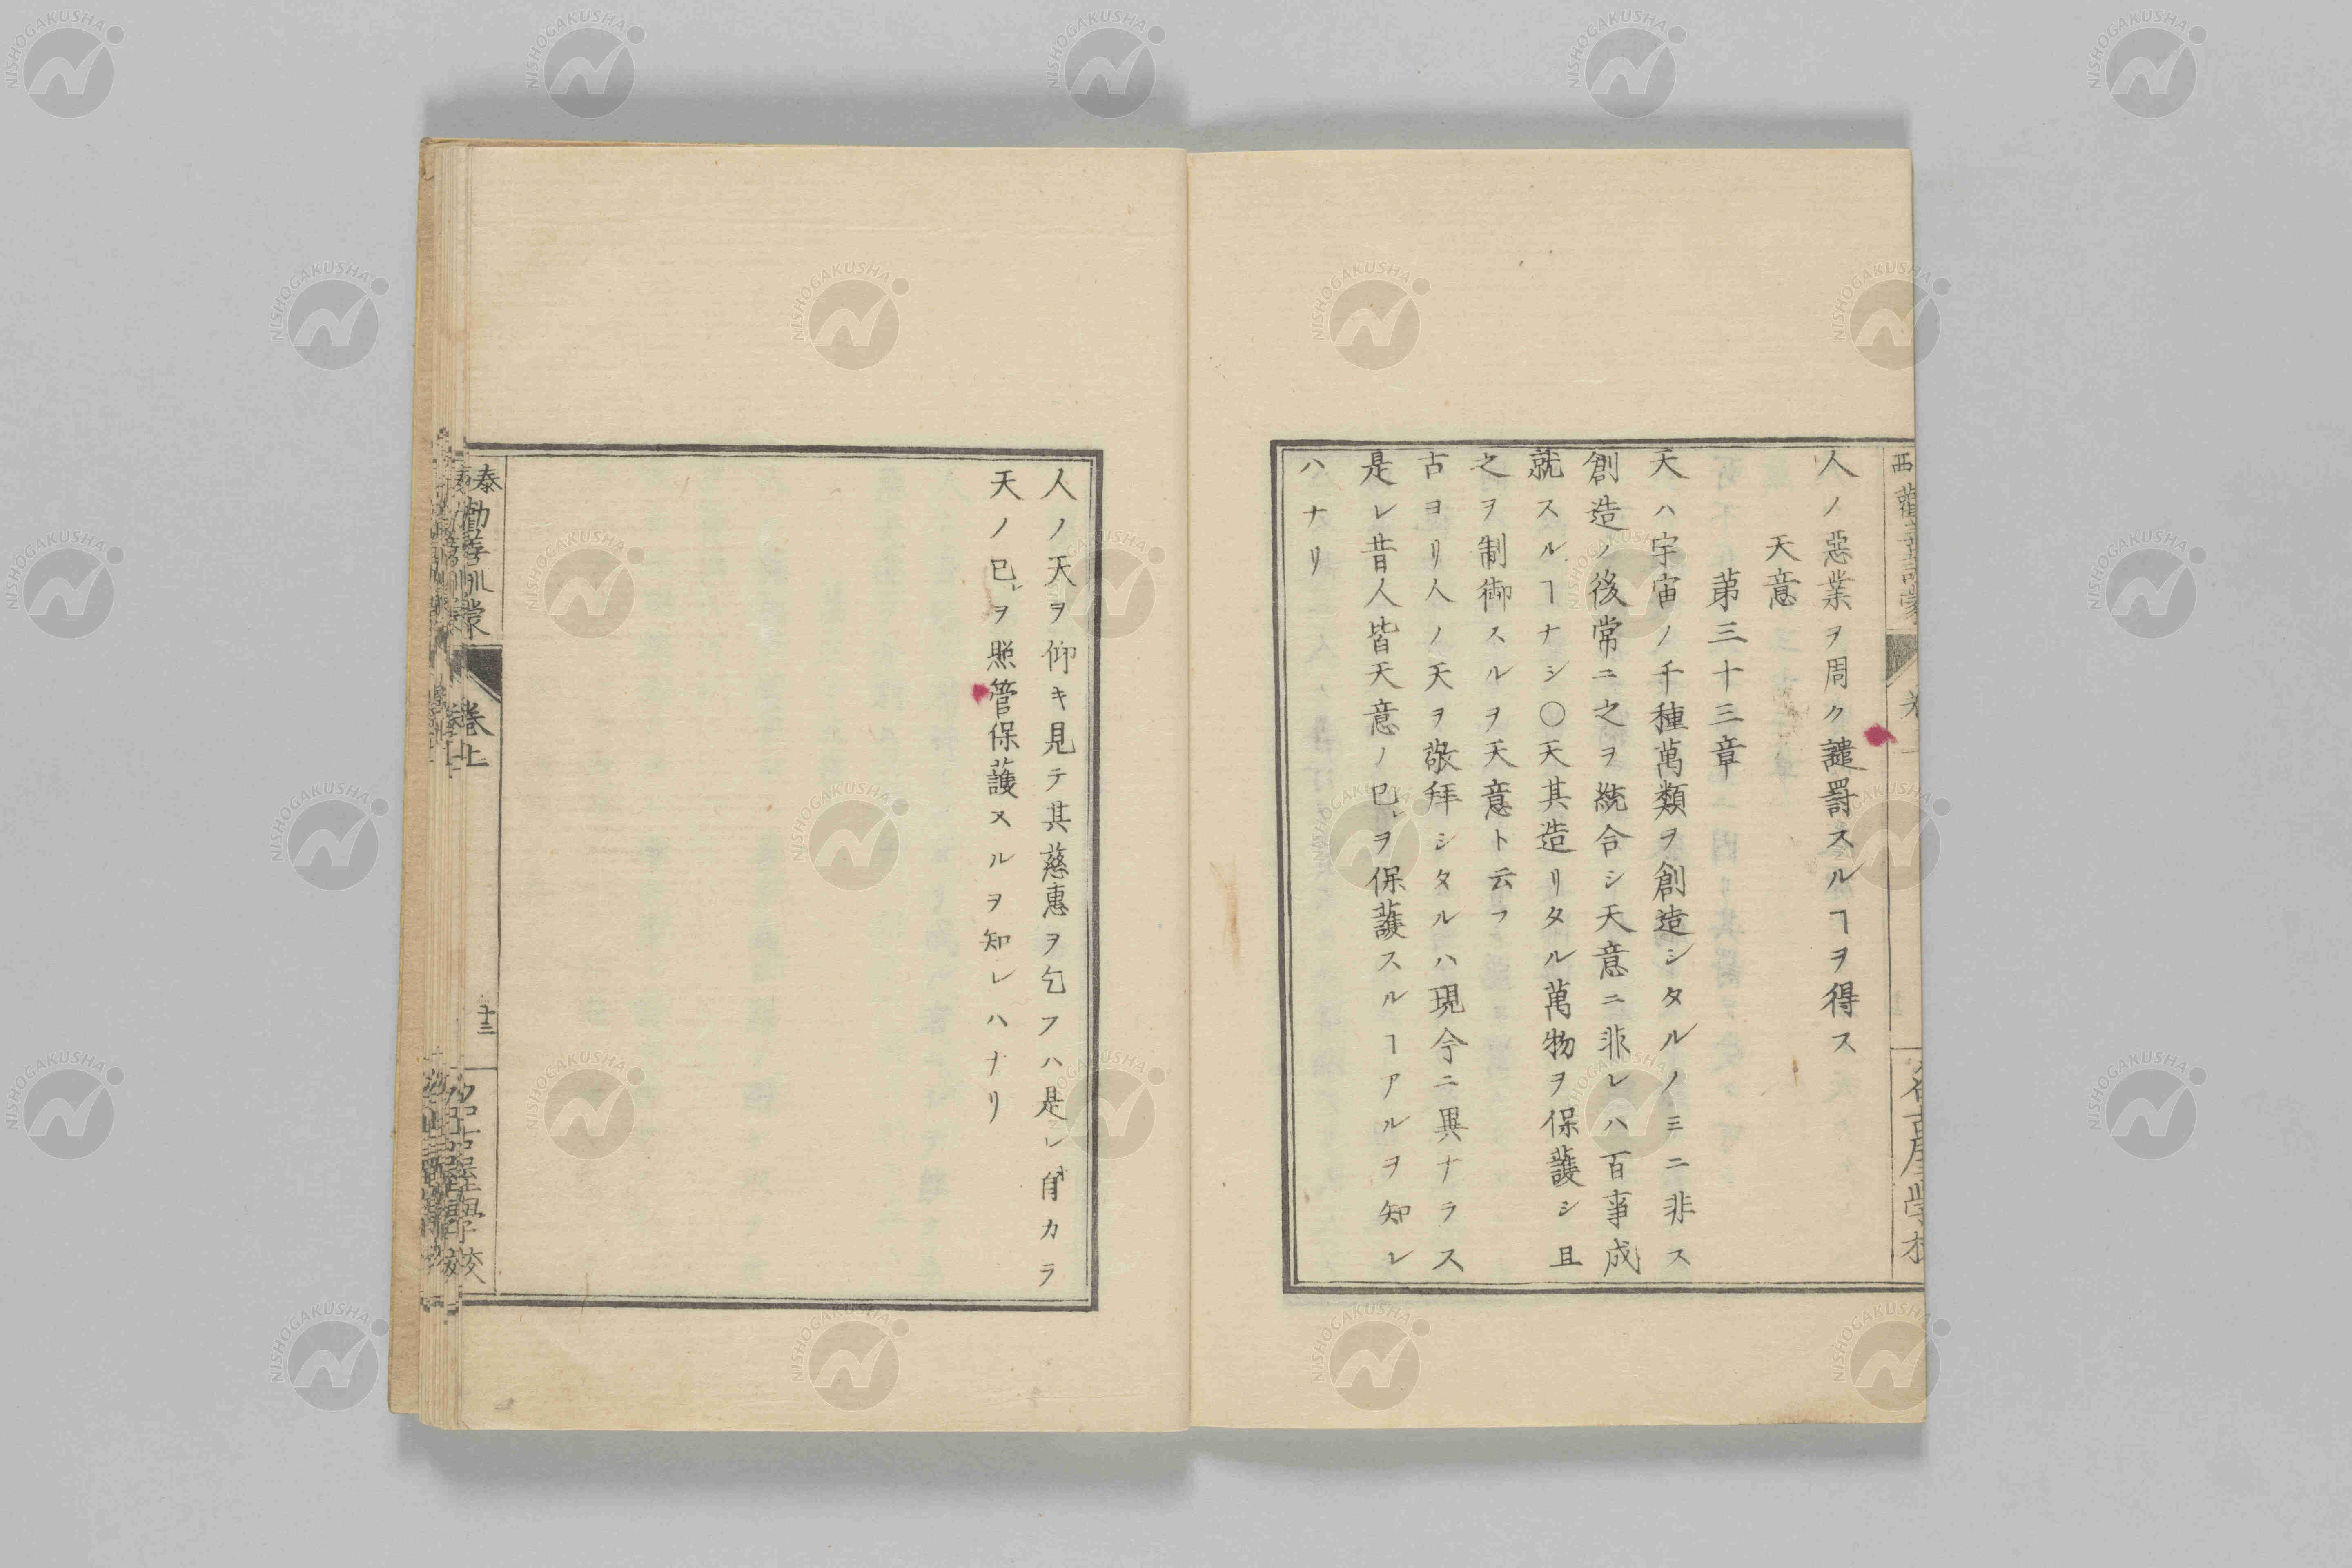 人ノ惡業ヲ周ク譴罰スルヿヲ得ス
天意
第三十三章
天ハ宇宙ノ千種萬類ヲ創造シタルノミニ非ス
創造ノ後常ニ之ヲ統合シ天意ニ非レハ百事成
就スルヿナシ〇天其造リタル萬物ヲ保護シ且
之ヲ制御スルヲ天意ト云フ
古ヨリ人ノ天ヲ敬拜シタルハ現今ニ異ナラス
是レ昔人皆天意ノ已レヲ保護スルヿアルヲ知レ
ハナリ
人ノ天ヲ仰キ見テ其慈惠ヲ乞フハ是レ自カラ
天ノ已レヲ照管保護スルヲ知レハナリ
泰 勸善訓蒙
卷上
十三
名古屋學校
NISHOGAKUSHA